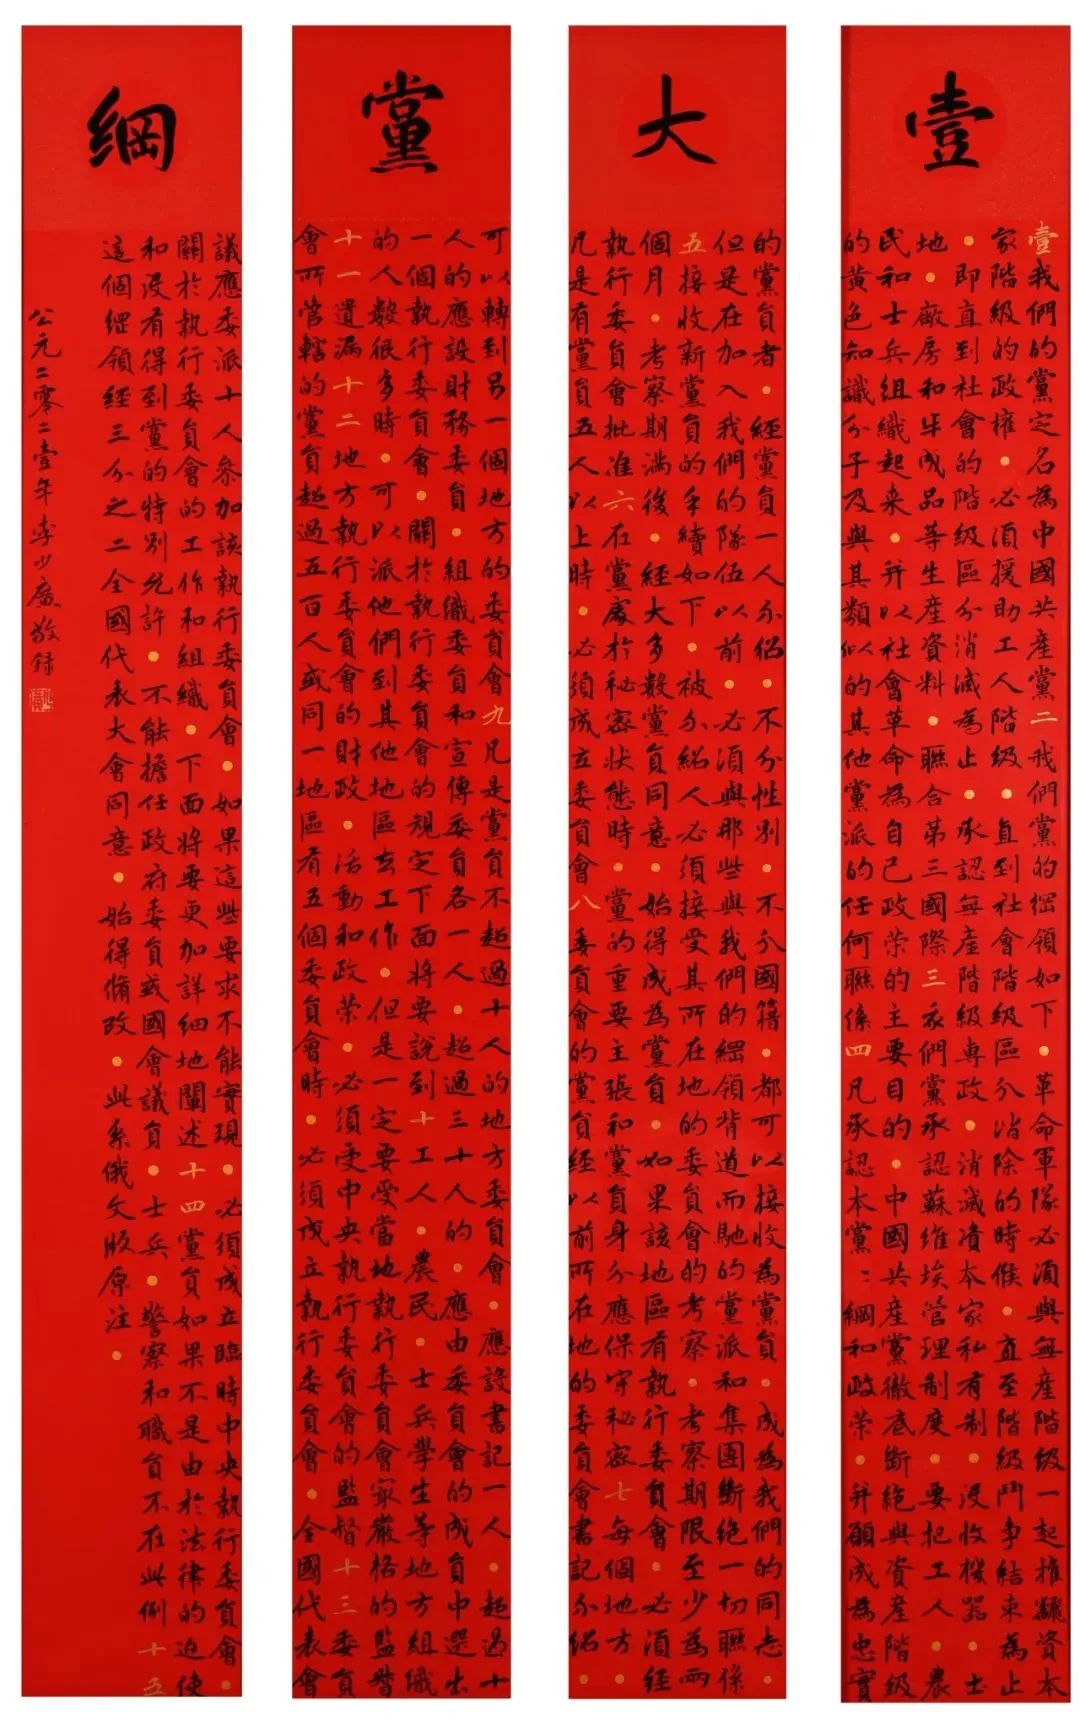 壹
壹我們的黨定名為中國共產黨二我們黨的綱領如下·革命軍隊必須與無產階級一起推翻資本
家階級的政權·必須援助工人階級··直到社會階級區分消除的時候·直至階級鬥爭結束為止
·即直到社會的階級區分消滅為止·承認無產階級專政·消滅資本家私有制·沒收機器·土
地·廠房和半成品等生產資料·聯合第三國際三我們黨承認蘇維埃管理制度·要把工人·農
民和士兵組織起来·并以社會革命為自己政策的主要目的·中國共產黨徹底斷絕與資產階級
的黃色知識分子及與其類似的其他黨派的任何聯係四凡承認本黨：綱和政策·并願成為忠實
大
的黨員者·經黨員一人介紹·不分性别·不分國籍·都可以接收為黨員·成為我們的同志·
但是在加入我們的隊伍以前··必須與那些與我們的綱領背道而馳的黨派和集團斷絕一切聯係
五接收新黨員的手續如下·被介紹人必須接受其所在地的委員會的考察·考察期限至少為兩
個月·考察期滿後·經大多數黨員同意·始得成為黨員·如果該地區有執行委員會·必須經
執行委員會批准六在黨處於秘密狀態時·黨的重要主張和黨員身分應保守秘密七每個地方
凡是有黨員五人以上時·必須成立委員會八委員會的黨員經以前所在地的委員會書記介紹·
黨
可以轉到另一個地方的委員會九凡是黨員不超過十人的地方委員會·應設書記一人·超過十
人的應設財務委員·組織委員和宣傳委員各一人·超過三十人的·應由委員會的成員中選出
一個執行委員會·關於執行委員會的規定下面將要說到十工人·農民·士兵學生等地方組織
的人數很多時·可以派他們到其他地區去工作·但是一定要受當地執行委員會最嚴格的監督
十一遺漏十二地方執行委員會的財政·活動和政策·必須受中央執行委員會的監督十三委員
會所管轄的黨員超過五百人或同一地區有五個委員會時·必須成立執行委員會·全國代表會
綱
議應委派十人參加該執行委員會·如果這些要求不能實現·必須成立臨時中央執行委員會·
關於執行委員會的工作和組織·下面將要更加詳細地闡述十四黨員如果不是由於法律的迫使
和沒有得到黨的特別允許·不能擔任政府委員或國會議員·士兵·警察和職員不在此例十五
這個綱領經三分之二全國代表大會同意·始得脩改·此系俄文版原注·
公元二零二壹年李少廣敬錄